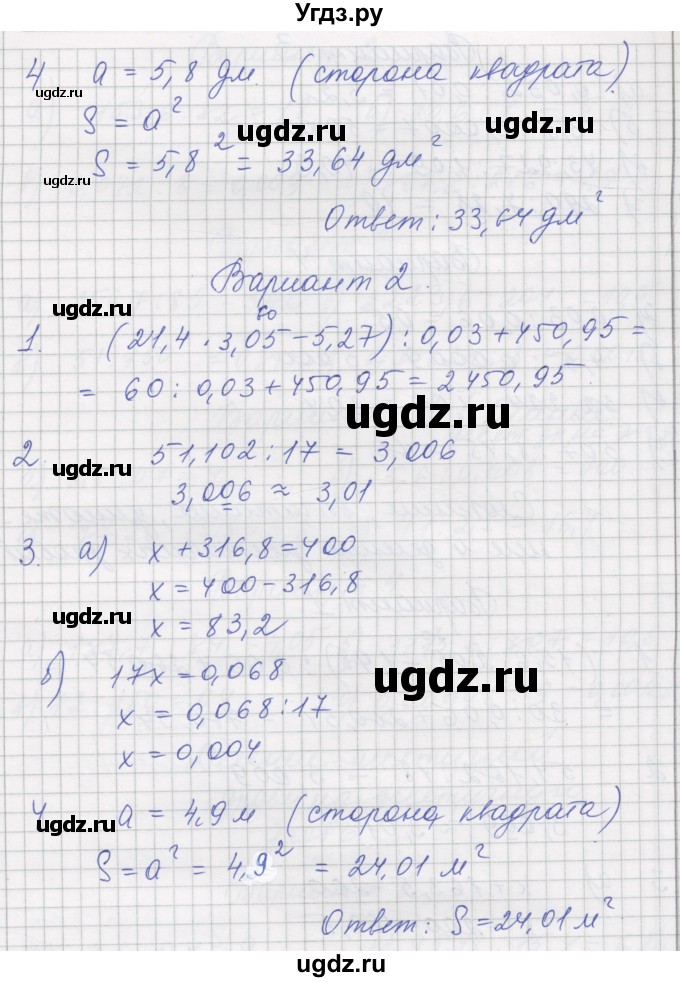 Угдз.ру
4 a = 5,8 дм. (сторона квадрата)
ugdz.ru
S = a²
ugdz.ru ugdz.ru
S = 5,8² = 33,64 дм²
ugdz.ru
Ответ: 33,64 дм²
Вариант 2.
ugdz.ru
60
1. (21,4 · 3,05 – 5,27) : 0,03 + 450,95 =
= 60 : 0,03 + 450,95 = 2450,95
ugdz.ru
2. 51,102 : 17 = 3,006
ugdz.ru
3,006 ≈ 3,01
3. а) x + 316,8 = 400
x = 400 – 316,8
ugdz.ru
x = 83,2
б) 17x = 0,068
ugdz.ru
x = 0,068 : 17
x = 0,004
4 a = 4,9 м (сторона квадрата)
ugdz.ru ugdz.ru
S = a² = 4,9² = 24,01 м²
Ответ: S = 24,01 м²
ugdz.ru ugdz.ru
ugdz.ru